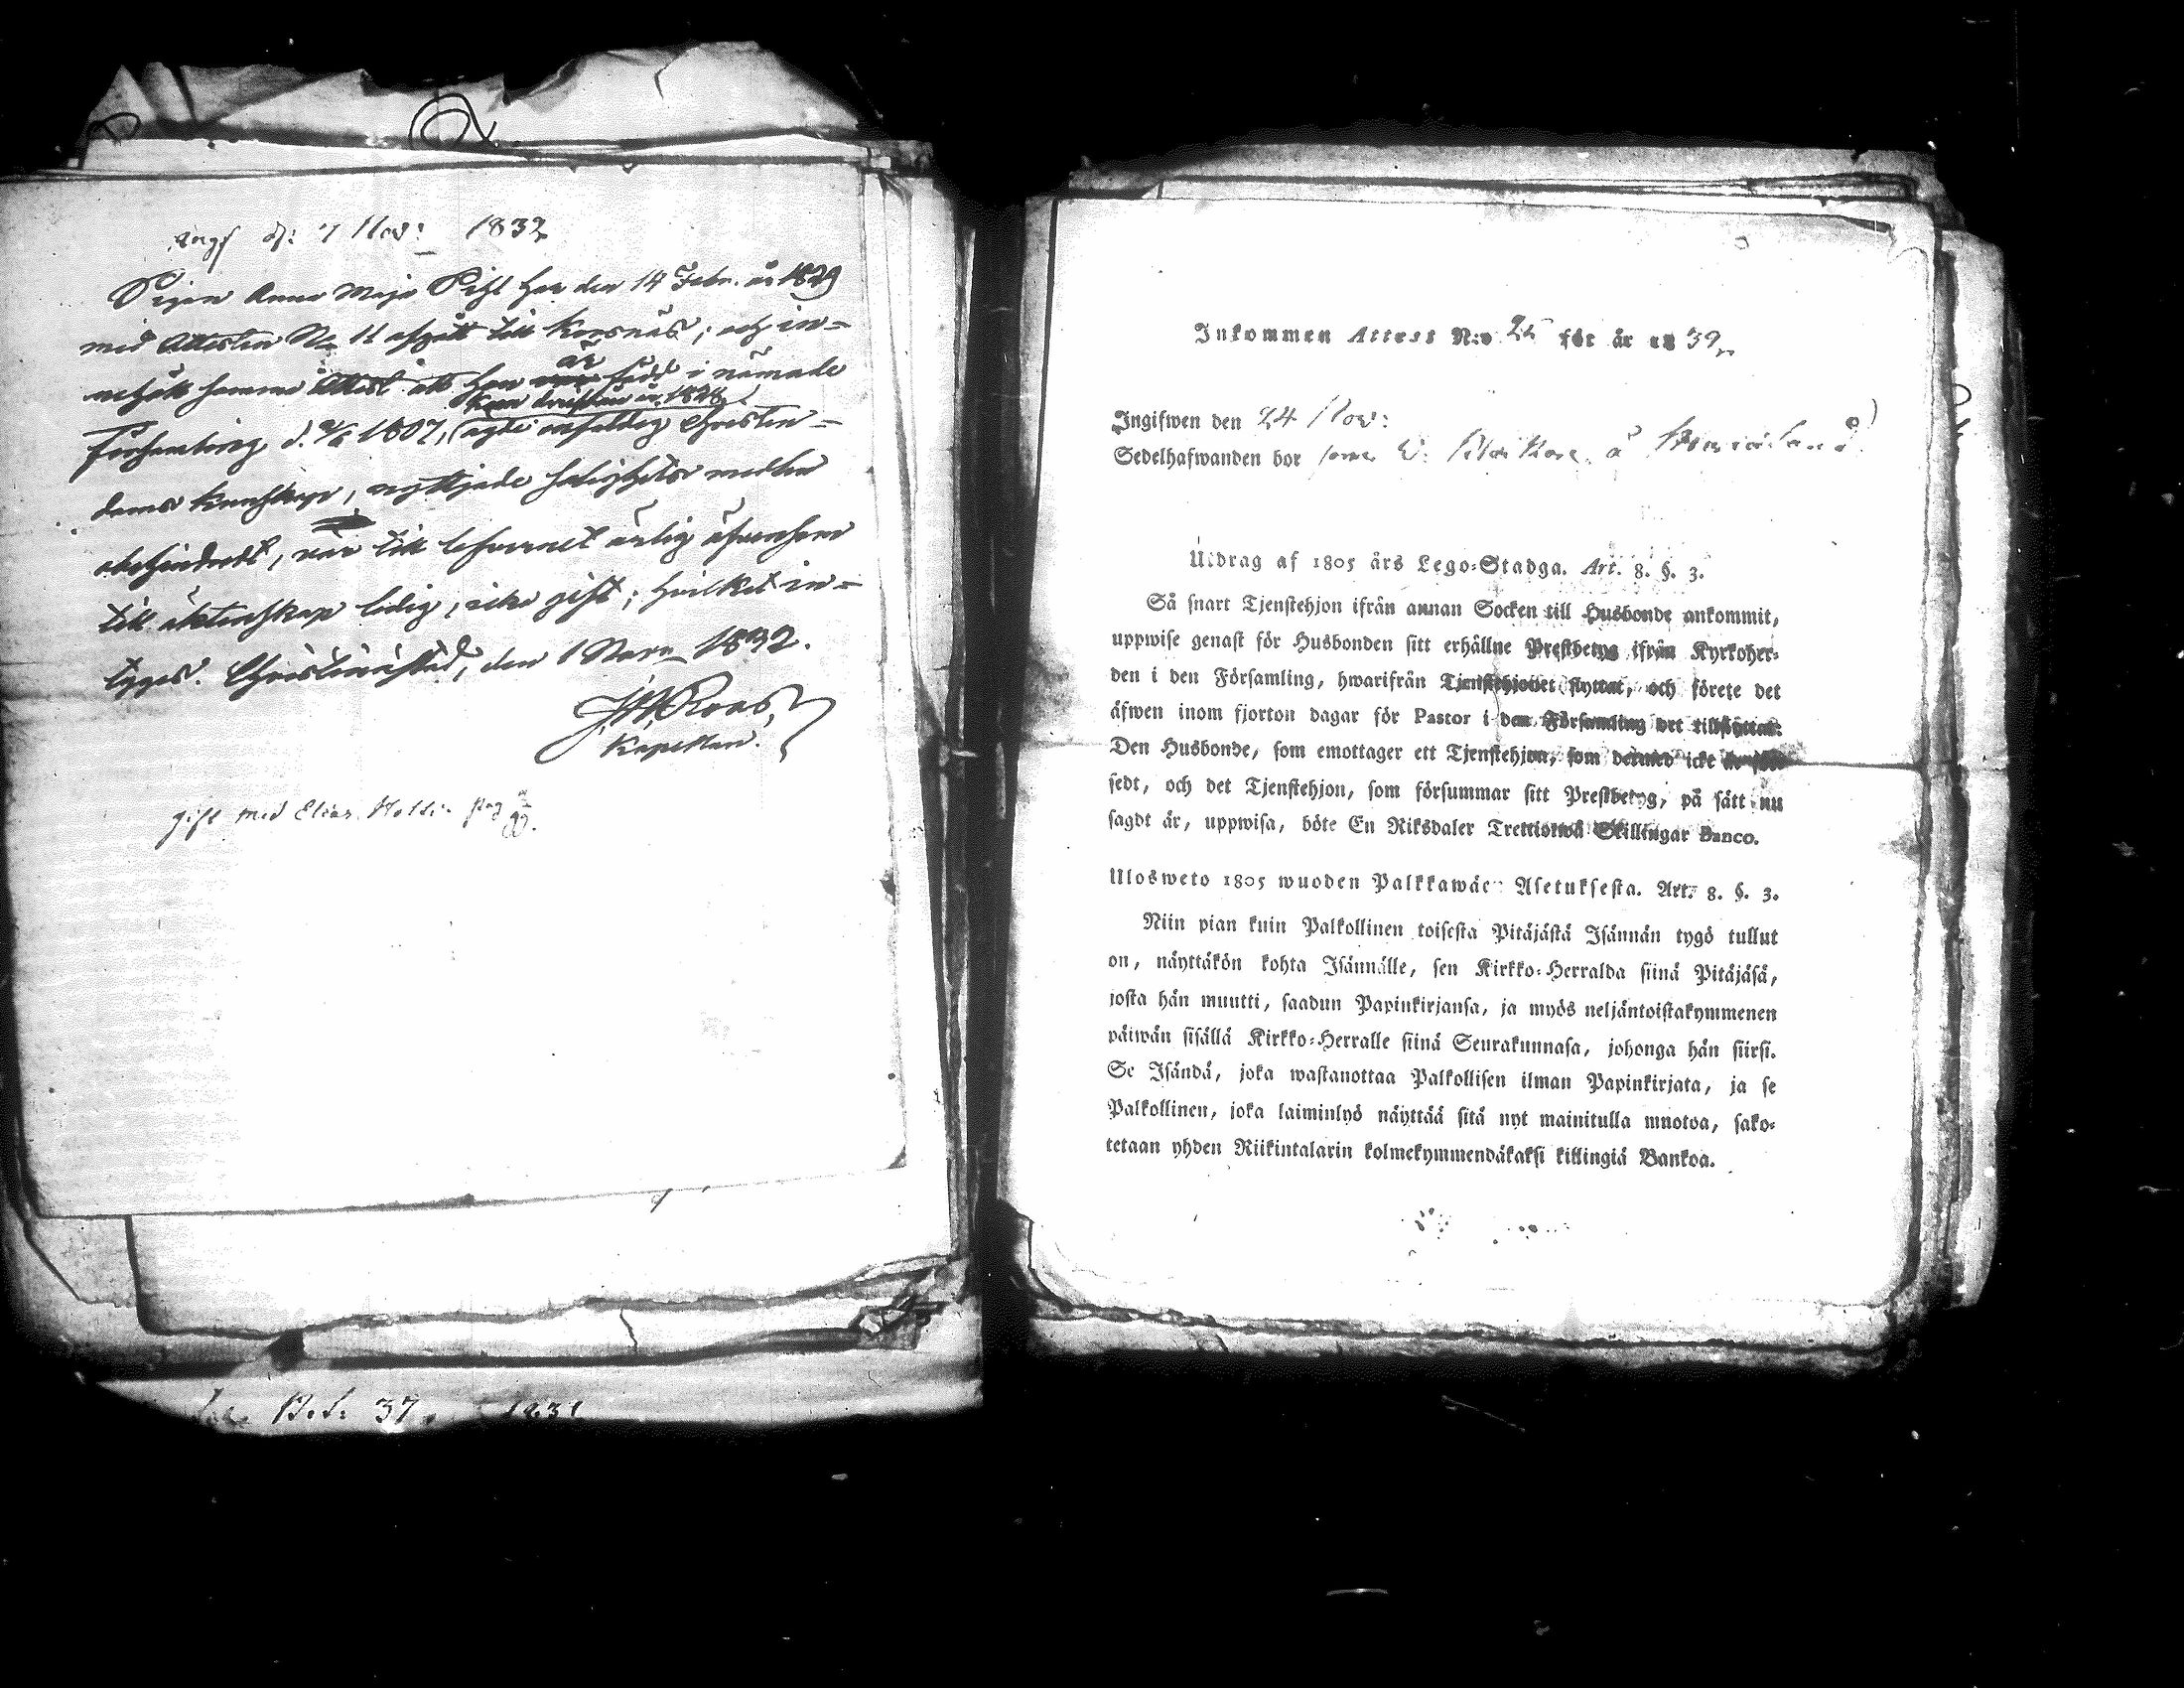 d: 7 Nov: 1832
Pigan Anna Maja Pihl har den 14 Febr. år 1829
med Attesten No 11 afgått till Korsnäs; och in-
nehöll samma Attest att hon är född i nämnde
kom dristian år 1828
Församling d. 1807, (ägde enfaldig Christen-
doms kunskap, nyttjade salighets medlen
obehindradt, var till lefvernet ärlig äfvensom
till äktenskap ledig, icke gift; hvilket in-
tygas. Christinæstad, den 1 1832.
Roos,
Kapellan.
gift med Elias pag
37. 1831
Inkommen Attest N:o 25 för år 1839
Ingifwen den 24 Nov:
Sedelhafwanden bor som å
Utdrag af 1805 års Lego-Stadga. Art. 8. §. 3.
Så snart Tjenstehjon ifrån annan Socken till Husbonde ankommit,
uppwise genast för Husbonden sitt erhållne Prestbetyg ifrån Kyrkoher-
den i den Församling, hwarifrån Tjenstehjonet flyttat, och förete det
äfwen inom fjorton dagar för Pastor i den Församling det tillflyttat.
Den Husbonde, som emottager ett Tjenstehjon, som dermed icke är
sedt, och det Tjenstehjon, som försummar sitt Prestbetyg, på sätt nu
sagdt är, uppwisa, böte En Riksdaler Trettiotwå Skillingar Banco.
Ulosweto 1805 wuoden Palkkawäen Asetuksesta. Art. 8. §. 3.
Niin pian kuin Palkollinen toisesta Pitäjästä Isännän tygö tullut
on, näyttäkön kohta Isännälle, sen Kirkko-Herralda siinä Pitäjäsä,
josta hän muutti, saadun Papinkirjansa, ja myös neljäntoistakymmenen
päiwän sisällä Kirkko-Herralle siinä Seurakunnasa, johonga hän siirsi.
Se Isändä, joka wastanottaa Palkollisen ilman Papinkirjata, ja se
Palkollinen, joka laiminlyö näyttää sitä nyt mainitulla muotoa, sako-
tetaan yhden Riikintalarin kolmekymmendäkaksi killingiä Bankoa.